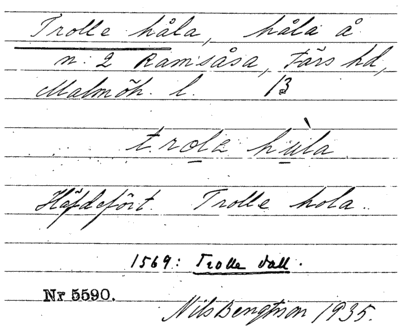 Trolle håla, håla å
n: 2 Ramsåsa, Färs hd,
Malmöh. l. 13
trolə hùla
Häfdefört. Trolle hola.
1569: Trolle dall.
Nr 5590.
Nils Bengtson 1935.